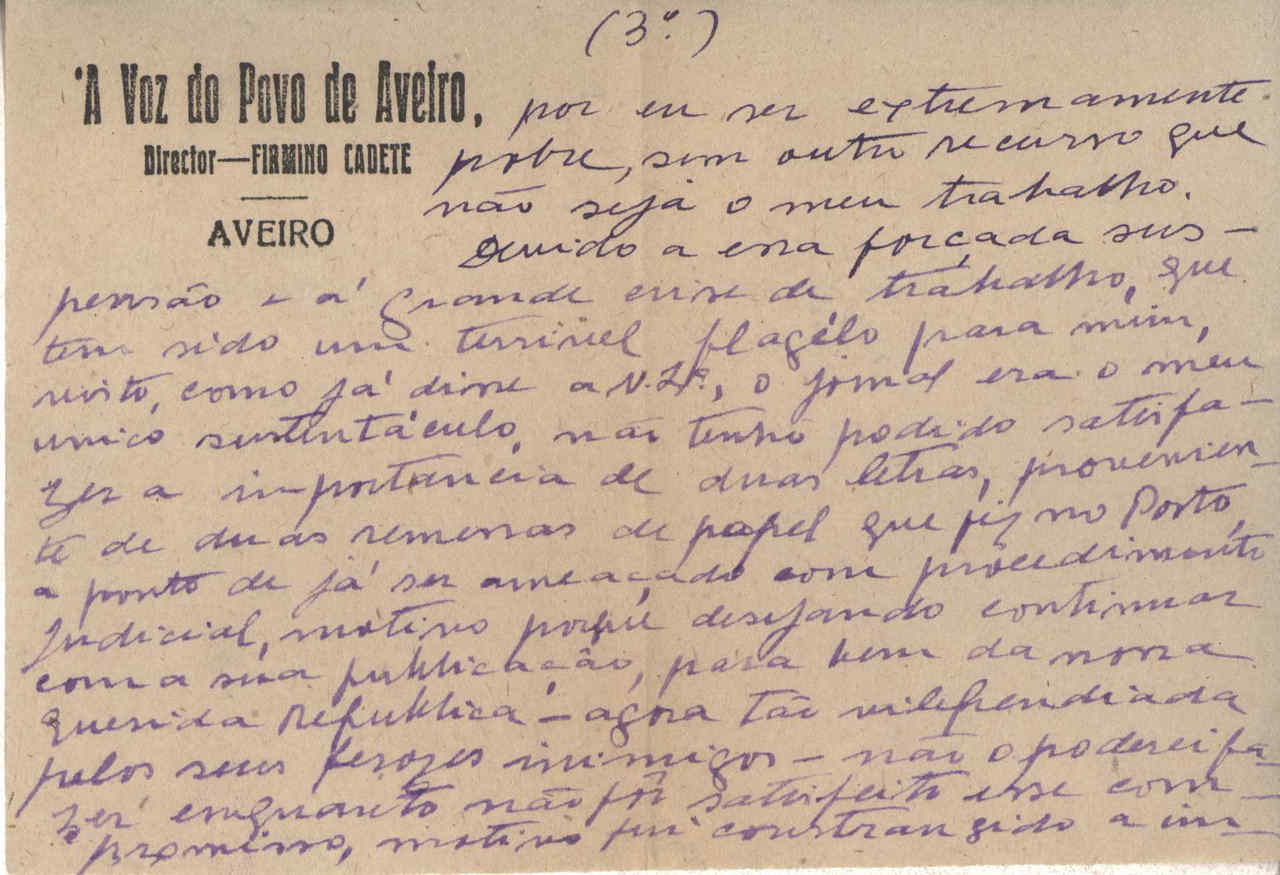 (3º)
"A Voz do Povo de Aveiro,
Director—FIRMINO CADETE
AVEIRO
por eu ser extremamente
pobre, sem outro recurso que
não seja o meu trabalho.
Devido a essa forçada sus-
pensão e á grande crise de trabalho, que
tem sido um terrivel flagélo para mim,
visto, como já disse a V. Exª, o jornal era o meu
unico sustentáculo, não tenho podido satisfa-
zer a importancia de duas letras, provenien-
te de duas remessas de papel que fiz no Porto,
a ponto de já ser ameaçado com procedimento
Judicial, motivo porque desejando continuar
com a sua publicação, para bem da nossa
querida Republica - agora tão vilependiada
pelos seus ferozes inimigos - não o poderei fa-
zer enquanto não fôr satisfeito esse com-
promisso, motivo fui constrangido a in-